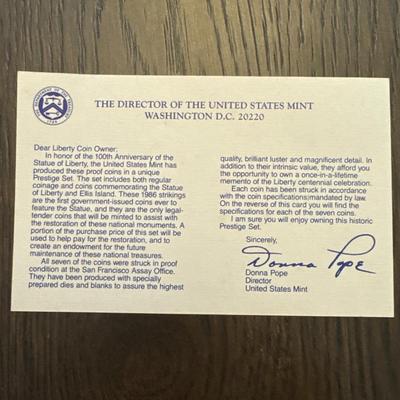 THE DIRECTOR OF THE UNITED STATES MINT
WASHINGTON D.C. 20220
Dear Liberty Coin Owner:
In honor of the 100th Anniversary of the
Statue of Liberty, the United States Mint has
produced these proof coins in a unique
Prestige Set. The set includes both regular
coinage and coins commemorating the Statue
of Liberty and Ellis Island. These 1986 strikings
are the first government-issued coins ever to
feature the Statue, and they are the only legal-
tender coins that will be minted to assist with
the restoration of these national monuments. A
portion of the purchase price of this set will be
used to help pay for the restoration, and to
create an endowment for the future
maintenance of these national treasures.
All seven of the coins were struck in proof
condition at the San Francisco Assay Office.
They have been produced with specially
prepared dies and blanks to assure the highest
quality, brilliant luster and magnificent detail. In
addition to their intrinsic value, they afford you
the opportunity to own a once-in-a-lifetime
memento of the Liberty centennial celebration.
Each coin has been struck in accordance
with the coin specifications mandated by law.
On the reverse of this card you will find the
specifications for each of the seven coins.
I am sure you will enjoy owning this historic
Prestige Set.
Sincerely,
Donna Pope
Donna Pope
Director
United States Mint